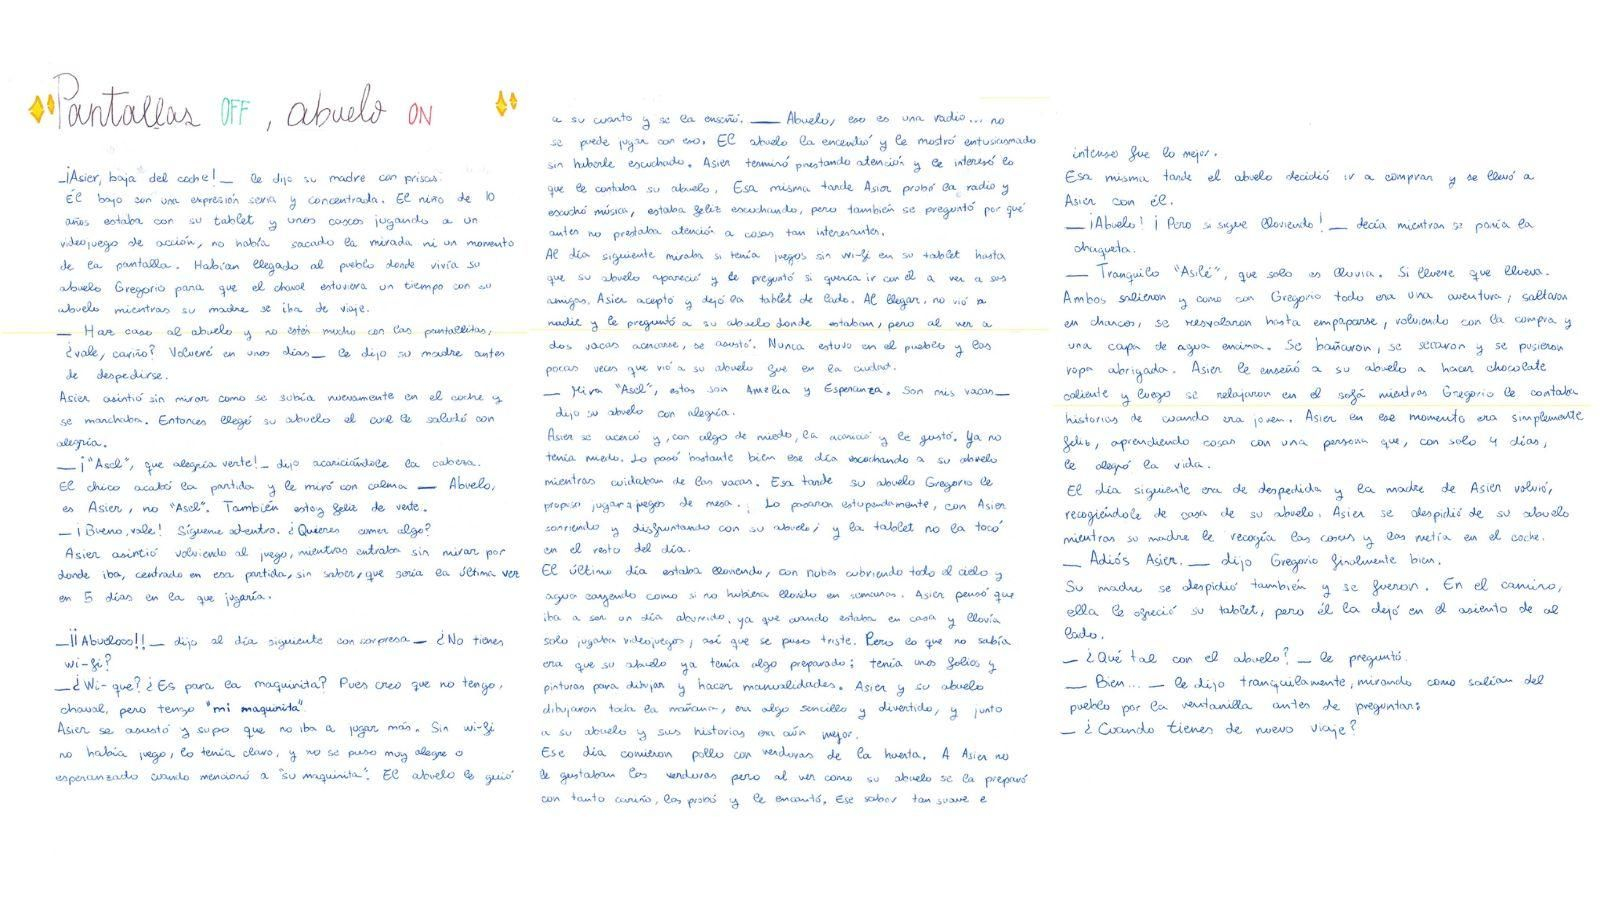 Pantallas OFF, abuelo ON
_¡Asier, baja del coche!_ le dijo su madre con prisas.
Él bajo con una expresión seria y concentrada. El niño de 10
años estaba con su tablet y unos cascos jugando a un
videojuego de acción, no había sacado la mirada ni un momento
de la pantalla. Habían llegado al pueblo donde vivía su
abuelo Gregorio para que el chaval estuviera un tiempo con su
abuelo mientras su madre se iba de viaje.
_ Haz caso al abuelo y no estés mucho con las pantallitas,
¿vale, cariño? Volveré en unos días_ le dijo su madre antes
de despedirse.
Asier asintió sin mirar como se subía nuevamente en el coche y
se marchaba. Entonces llegó su abuelo el cual le saludó con
alegría.
_¡"Asel", que alegría verte!_ dijo acariciándole la cabeza.
El chico acabó la partida y le miró con calma _ Abuelo,
es Asier, no "Asel". También estoy feliz de verte.
_¡Bueno, vale! Sígueme adentro. ¿Quieres comer algo?
Asier asintió volviendo al juego, mientras entraba sin mirar por
donde iba, centrado en esa partida, sin saber, que sería la última vez
en 5 días en la que jugaría.
_¡¡Abuelooo!!_ dijo al día siguiente con sorpresa_ ¿No tienes
wi-fi?
_¿Wi-que? ¿Es para la maquinita? Pues creo que no tengo,
chaval, pero tengo "mi maquinita".
Asier se asustó y supo que no iba a jugar más. Sin wi-fi
no había juego, lo tenía claro, y no se puso muy alegre o
esperanzado cuando mencionó a "su maquinita". El abuelo le guió
a su cuarto y se la enseñó. _ Abuelo, eso es una radio... no
se puede jugar con eso. El abuelo la encendió y le mostró entusiasmado
sin haberle escuchado. Asier terminó prestando atención y le interesó lo
que le contaba su abuelo. Esa misma tarde Asier probó la radio y
escuchó música, estaba feliz escuchando, pero también se preguntó por qué
antes no prestaba atención a cosas tan interesantes.
Al día siguiente miraba si tenía juegos sin wi-fi en su tablet hasta
que su abuelo apareció y le preguntó si quería ir con él a ver a sus
amigas. Asier aceptó y dejó la tablet de lado. Al llegar, no vió a
nadie y le preguntó a su abuelo donde estaban, pero al ver a
dos vacas acercarse, se asustó. Nunca estuvo en el pueblo y las
pocas veces que vió a su abuelo fue en la ciudad.
_ Mira "Asel", estas son Amelia y Esperanza. Son mis vacas_
dijo su abuelo con alegría.
Asier se acercó y, con algo de miedo, la acarició y le gustó. Ya no
tenía miedo. Lo pasó bastante bien ese día escuchando a su abuelo
mientras cuidaban de las vacas. Esa tarde su abuelo Gregorio le
propuso jugar a juegos de mesa. Lo pasaron estupendamente, con Asier
sonriendo y disfrutando con su abuelo, y la tablet no la tocó
en el resto del día.
El último día estaba lloviendo, con nubes cubriendo todo el cielo y
agua cayendo como si no hubiera llovido en semanas. Asier pensó que
iba a ser un día aburrido, ya que cuando estaba en casa y llovía
solo jugaba videojuegos, así que se puso triste. Pero lo que no sabía
era que su abuelo ya tenía algo preparado: tenía unos folios y
pinturas para dibujar y hacer manualidades. Asier y su abuelo
dibujaron toda la mañana, era algo sencillo y divertido, y junto
a su abuelo y sus historias era aún mejor.
Ese día comieron pollo con verduras de la huerta. A Asier no
le gustaban las verduras pero al ver como su abuelo se la preparó
con tanto cariño, las probó y le encantó. Ese sabor tan suave e
intenso fue lo mejor.
Esa misma tarde el abuelo decidió ir a comprar y se llevó a
Asier con él.
_¡Abuelo! ¡Pero si sigue lloviendo!_ decía mientras se ponía la
chaqueta.
_ Tranquilo "Asilé", que solo es lluvia. Si llueve que llueva.
Ambos salieron y como con Gregorio todo era una aventura; saltaron
en charcos, se resvalaron hasta empaparse, volviendo con la compra y
una capa de agua encima. Se bañaron, se secaron y se pusieron
ropa abrigada. Asier le enseñó a su abuelo a hacer chocolate
caliente y luego se relajaron en el sofá mientras Gregorio le contaba
historias de cuando era joven. Asier en ese momento era simplemente
feliz, aprendiendo cosas con una persona que, con solo 4 días,
le alegró la vida.
El día siguiente era de despedida y la madre de Asier volvió,
recogiéndole de casa de su abuelo. Asier se despidió de su abuelo
mientras su madre le recogía las cosas y las metía en el coche.
_ Adiós Asier. _ dijo Gregorio finalmente bien.
Su madre se despidió también y se fueron. En el camino,
ella le ofreció su tablet, pero él la dejó en el asiento de al
lado.
_ ¿Qué tal con el abuelo? _ le preguntó.
_ Bien... _ le dijo tranquilamente, mirando como salían del
pueblo por la ventanilla antes de preguntar:
_ ¿Cuando tienes de nuevo viaje?